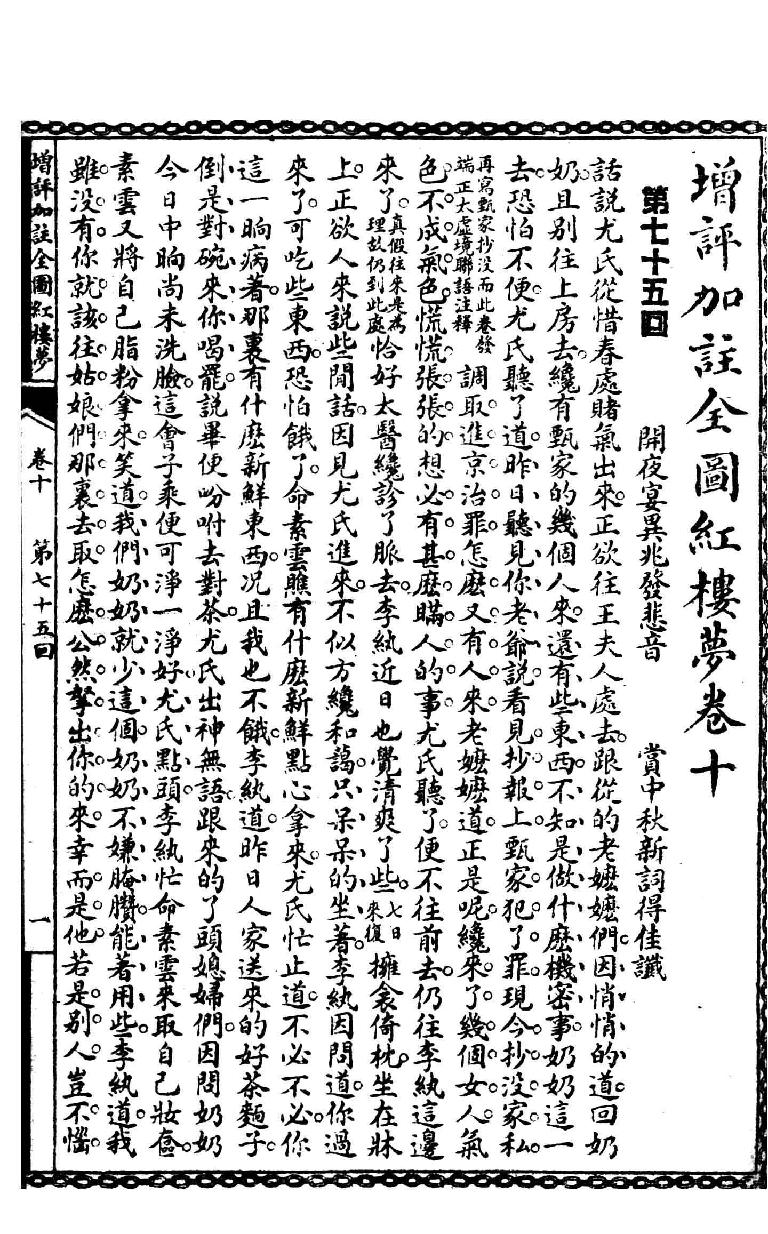 增評加註全圖紅樓夢卷十
第七十五回　開夜宴異兆發悲音　賞中秋新詞得佳讖
話說尤氏從惜春處賭氣出來。正欲往王夫人處去。跟從的老嬤嬤們。因悄悄的道。回奶
奶。且別往上房去。纔有甄家的幾個人來。還有些東西。不知是做什麽機密事。奶奶這一
去恐怕不便。尤氏聽了道。昨日聽見你老爺說。看見抄報上甄家犯了罪。現今抄沒家私。
再寫甄家抄沒而此卷發
端正太虛境聯語註釋
調取進京治罪。怎麽又有人來。老嬤嬤道。正是呢。纔來了幾個女人。氣
色不成氣色。慌慌張張的。想必有甚麽瞞人的事。尤氏聽了。便不往前去。仍往李紈這邊
來了。
真假往來是為
理故仍到此處
恰好太醫纔診了脈去。李紈近日也覺清爽了些。
七日
來復
擁衾倚枕。坐在牀
上。正欲人來說些閒話。因見尤氏進來。不似方纔和藹。只呆呆的坐著。李紈因問道。你過
來了。可吃些東西。恐怕餓了。命素雲瞧有什麽新鮮點心拿來。尤氏忙止道。不必不必。你
這一晌病著。那裏有什麽新鮮東西。况且我也不餓。李紈道。昨日人家送來的好茶麵子。
倒是對碗來你喝罷。說畢便吩咐去對茶。尤氏出神無語。跟來的丫頭媳婦們。因問奶奶
今日中晌尚未洗臉。這會子乘便可淨一淨好。尤氏點頭。李紈忙命素雲來取自己妝奩。
素雲又將自己脂粉拿來。笑道。我們奶奶就少這個。奶奶不嫌腌臢。能著用些。李紈道。我
雖沒有。你就該往姑娘們那裏去取。怎麽公然拏出你的來。幸而是他。若是別人。豈不惱
增評加註全圖紅樓夢
卷十　第七十五回
一